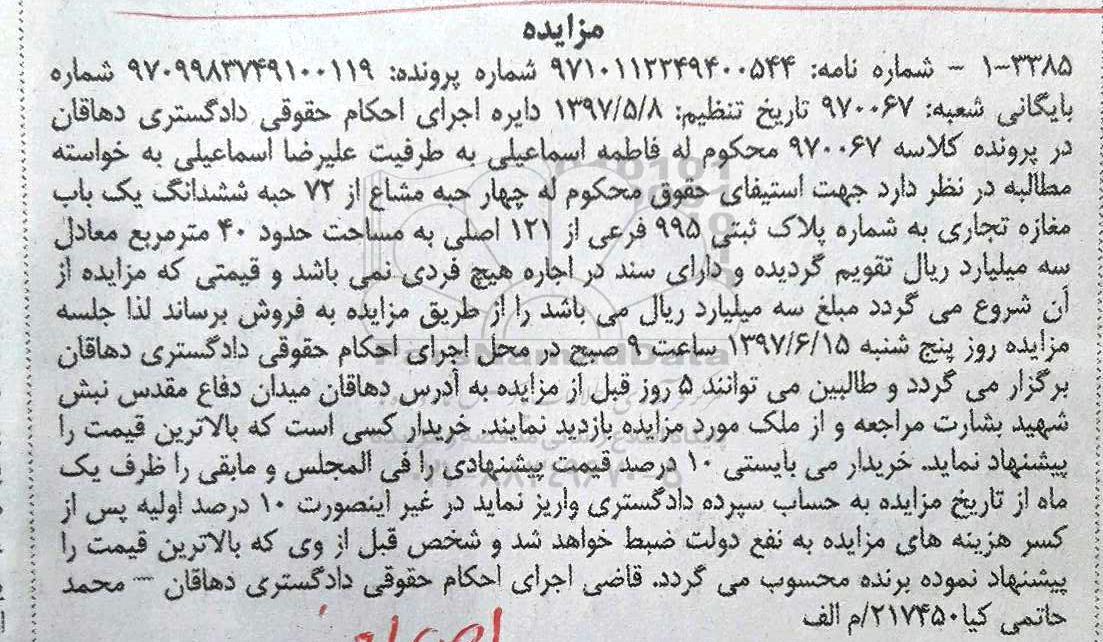 مزایده
۱-۳۳۸۵ - شماره نامه: ۹۷۱۰۱۱۲۲۴۹۴۰۰۵۴۴ شماره پرونده: ۹۷۰۹۹۸۳۷۴۹۱۰۰۱۱۹ شماره
بایگانی شعبه: ۹۷۰۰۶۷ تاریخ تنظیم: ۱۳۹۷/۵/۸ دایره اجرای احکام حقوقی دادگستری دهاقان
در پرونده کلاسه ۹۷۰۰۶۷ محکوم له فاطمه اسماعیلی به طرفیت علیرضا اسماعیلی به خواسته
مطالبه در نظر دارد جهت استیفای حقوق محکوم له چهار حبه مشاع از ۷۲ حبه ششدانگ یک باب
مغازه تجاری به شماره پلاک ثبتی ۹۹۵ فرعی از ۱۲۱ اصلی به مساحت حدود ۴۰ مترمربع معادل
سه میلیارد ریال تقویم گردیده و دارای سند در اجاره هیچ فردی نمی باشد و قیمتی که مزایده از
آن شروع می گردد مبلغ سه میلیارد ریال می باشد را از طریق مزایده به فروش برساند لذا جلسه
مزایده روز پنج شنبه ۱۳۹۷/۶/۱۵ ساعت ۹ صبح در محل اجرای احکام حقوقی دادگستری دهاقان
برگزار می گردد و طالبین می توانند ۵ روز قبل از مزایده به آدرس دهاقان میدان دفاع مقدس نبش
شهید بشارت مراجعه و از ملک مورد مزایده بازدید نمایند. خریدار کسی است که بالاترین قیمت را
پیشنهاد نماید. خریدار می بایستی ۱۰ درصد قیمت پیشنهادی را فی المجلس و مابقی را ظرف یک
ماه از تاریخ مزایده به حساب سپرده دادگستری واریز نماید در غیر اینصورت ۱۰ درصد اولیه پس از
کسر هزینه های مزایده به نفع دولت ضبط خواهد شد و شخص قبل از وی که بالاترین قیمت را
پیشنهاد نموده برنده محسوب می گردد. قاضی اجرای احکام حقوقی دادگستری دهاقان --- محمد
حاتمی کیا ۲۱۷۴۵۰/م الف